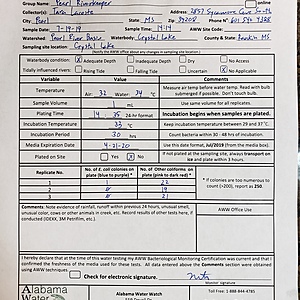 Group Name Pearl Riverkeeper online
Collector(s)
City Pearl State MS 39208 Phone # 601 540 7388
Sample Date 7-14-19 AWW Site Code:
Watershed Pearl River Basin Waterbody Crystal Lake County & State:
Sampling site location: Crystal Lake
(Notify the AWW office about any changes in sampling site location)
Waterbody condition: X Adequate Depth Inadequate Depth Dry No Access
Tidally influenced rivers: Rising Tide Falling Tide Uncertain X No Applicable
Variable Value Comments
Temperature Air: 32 Water: 34 °C Measure air temp before water temp. Read with bulb submerged if possible. Don't touch bulb.
Sample Volume 1 mL Use same volume for all replicates.
Plating Time 14 35 24 hr format Incubation begins when samples are plated.
Incubation Temperature 33 °C Keep incubation temperature between 29 and 37 °C.
Incubation Period 30 hrs Count bacteria within 30 - 48 hrs of incubation.
Media Expiration Date 4-21-20 Use this date format, Jul/2019 (from the media box).
Plated on Site Yes X No If not plated at the sampling site, always transport on ice and plate within 3 hours.
Replicate No. No. of E. coli colonies on plate (blue to purple) * No. Other coliforms on plate (pink to dark red) * *If colonies are too numerous to count (>200), report as 250.
1 1 22
2 1 19
3 0 21
Notes. Note evidence of rainfall, runoff within previous 24 hours, unusual smell, unusual color, cows or other animals in creek, etc. Record results of other tests here, if conducted (IDEXX, 3M Petrifilm, etc.).
AWW Office Use
I hereby declare that at the time of this water testing my AWW Bacteriological Monitoring Certification was current and that I confirmed the freshness of the media used for these tests. All data entered above the Comments section were obtained using AWW techniques.
Check for electronic signature.
Monitor signature
Alabama Water
Alabama Water Watch
Toll Free: 1-888-844-4785